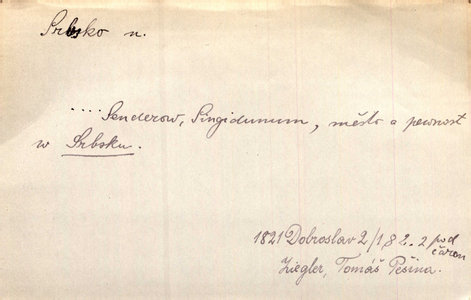 Srbsko n.
.... Senderow, Singidunum, město a pewnost
w Srbsku.
1821 Dobroslav 2/1,82. 2 pod
čarou
Ziegler, Tomáš Pešina.